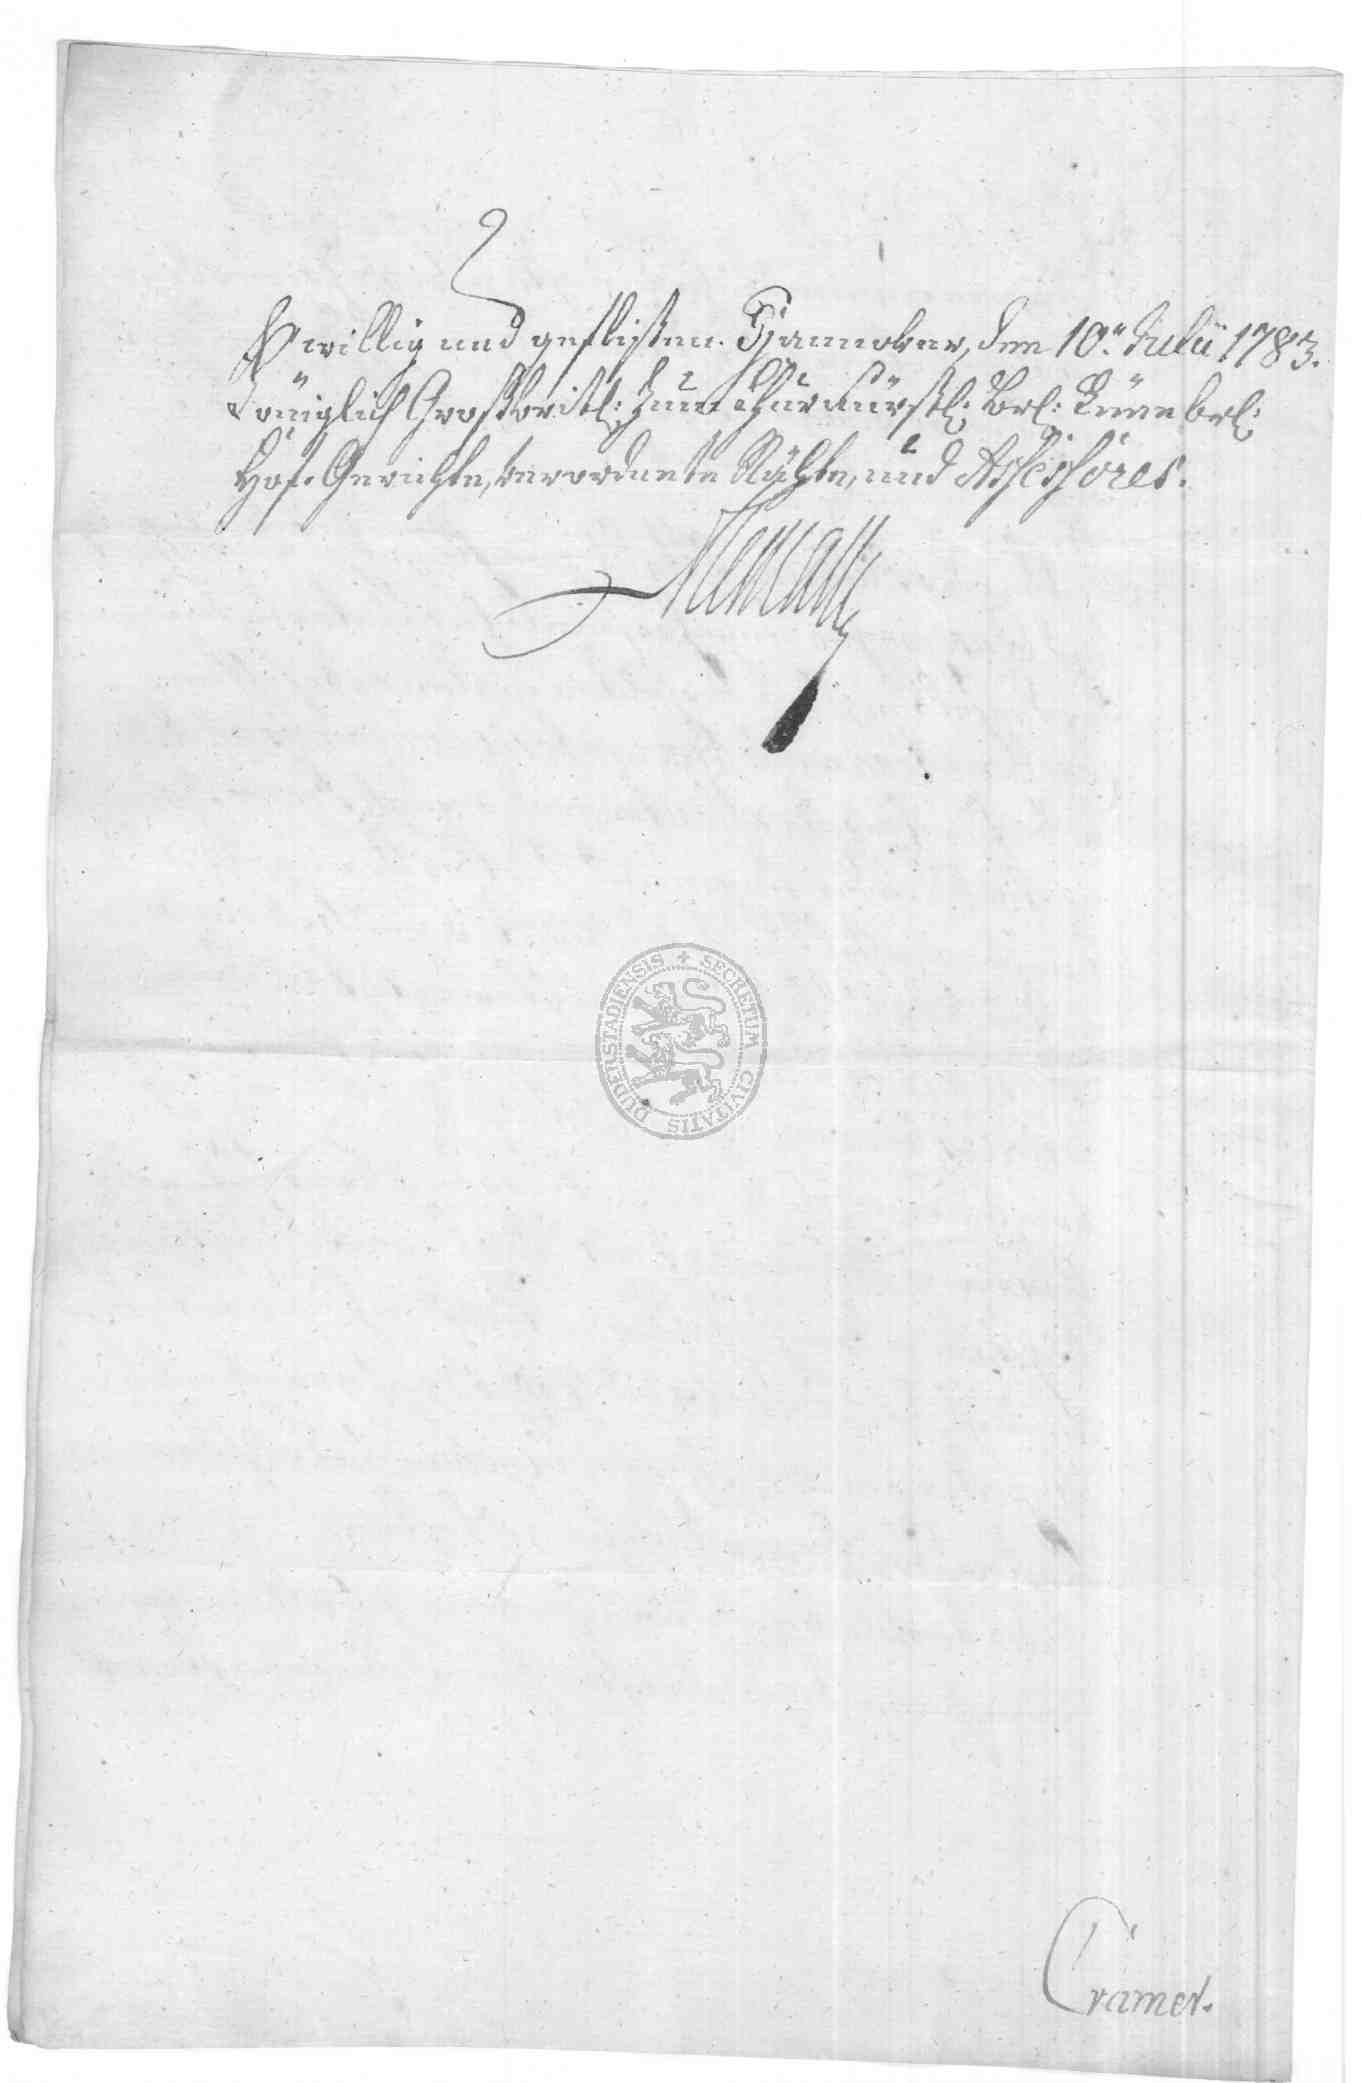 willig und geflißen. Hannover, den 10.n Julii 1783.
Königlich Großbrit: zum Churfürstl: Brl: Lünebrl:
Hof-Gerichte, verordnete Räthe, und Assessores.
SECRETUM CIVITATIS DUDERSTADIENSIS
Cramer.